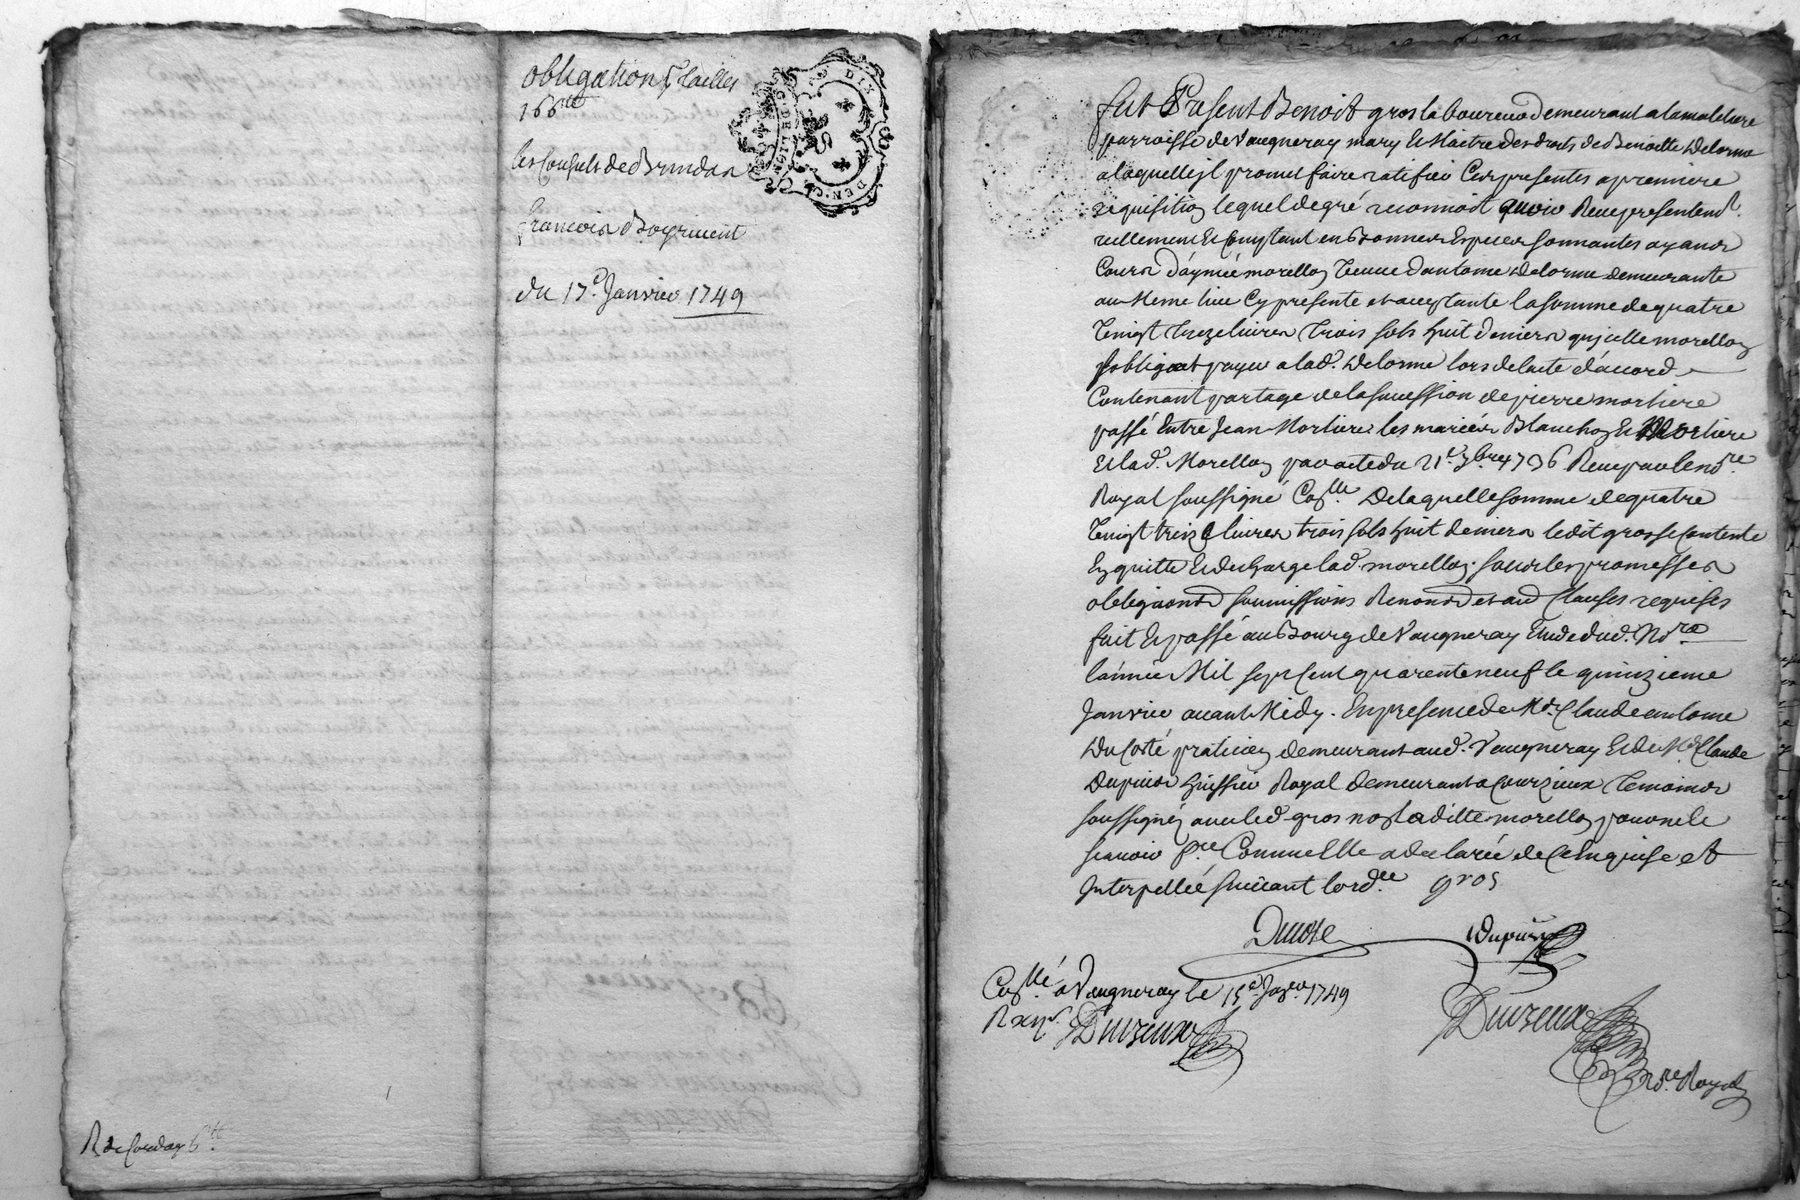 obligation p. tailles
166ᵗᵗ
les Consuls de Brindas
francois Boyrivent
du 17ᵉ. Janvier 1749
R de Cordoy 6ᵗᵗ
DIX
DEN.
fut Present Benoist gros laboureur demeurant a la maletiere
parroisse de Vaugneray mary Et Maitre des droits de Benoitte Delorme
a laquelle jl promet faire ratifier Ces presentes a premiere
requisition lequel de gré reconnoit avoir Receu presentemᵗ.
reellement Et Comptant en Bonnes Especes sonnantes ayans
Cours d'aymée morellon Veuve d'antoine Delorme demeurante
au Meme lieu Cy presente et acceptante la somme de quatre
Vingt treze livres trois sols huit deniers qu'jcelle morellon
s'obligeat payer a lad. Delorme lors de l'acte d'accord
Contenant partage de la succession de pierre mortiere
passé Entre Jean Mortiere les mariés Blanchon Et Mortiere
Et lad. Morellon par acte du 21ᵉ. 7bre 1736 Receu par le noʳᵉ
Royal soussigné Coⁿˡˡᵉ De laquelle somme de quatre
Vingt treize livres trois sols huit deniers ledit gros se contente
En quitte Et decharge lad. morellon. sous les promesses
obligaons soumissions Renons et aus Clauses requises
fait Et passé au Bourg de Vaugneray Etude dud. Noʳᵉ
l'année Mil sept Cent quarente neuf le quinzieme
Janvier avant Midy. En presence de Mᵉ. Claude antoine
Du Coté praticien demeurant aud. Vaugneray Et de Mᵉ Claude
Dupuis huissier Royal demeurant a Courzieux temoins
soussignés avec led gros non laditte morellon pour ne le
scavoir fʳᵉ Comme Elle a declarée de Ce Enquise et
Interpellée suivant l'ordᶜᵉ gros
Ducoté Dupuis
Coⁿˡˡᵉ a Vaugneray le 15ᵉ Janᵉʳ. 1749
Duvzeux
Duvzeux
noʳᵉ Royal